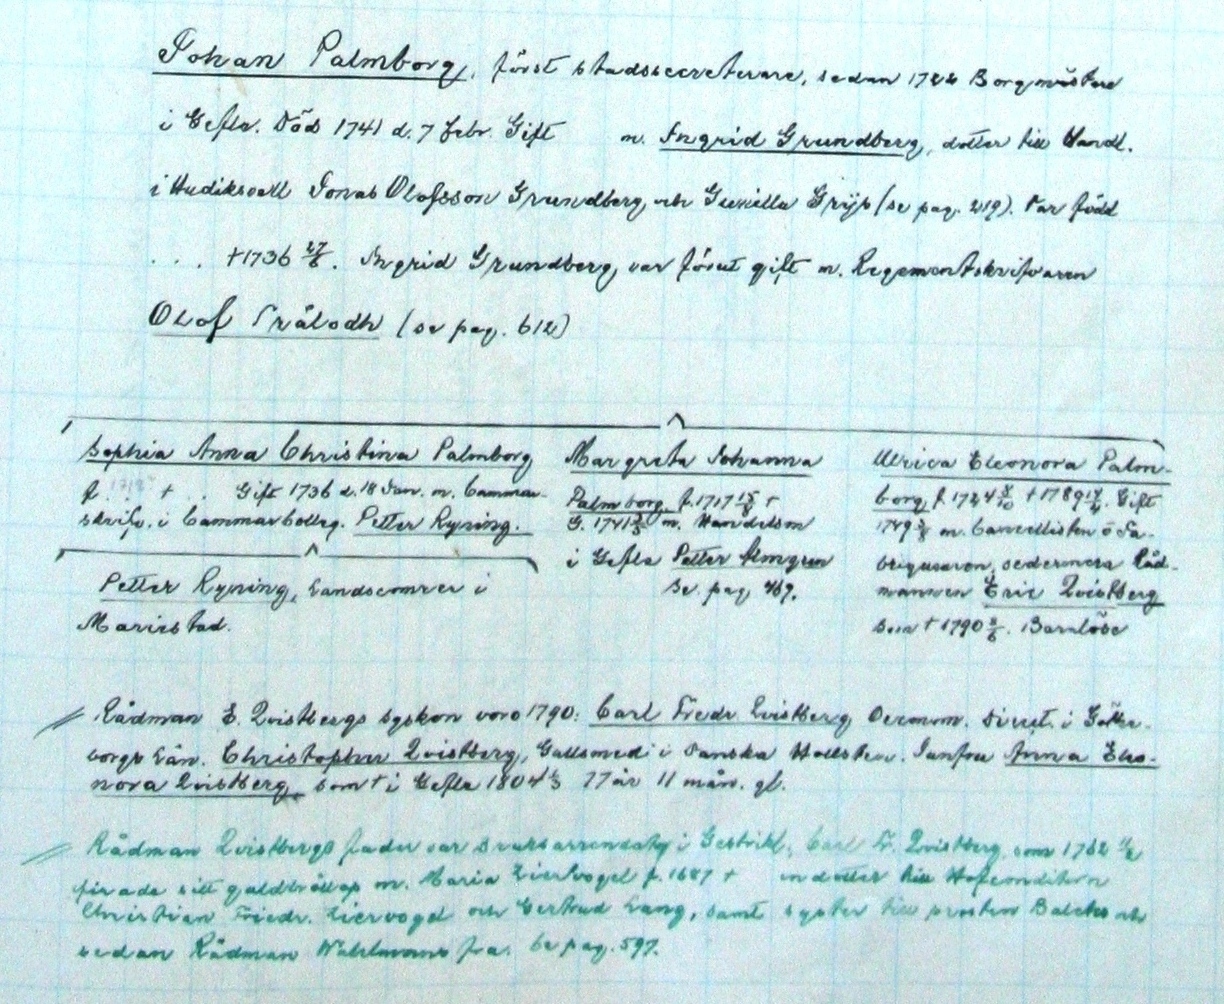 Johan Palmborg, först stadssecreterare, sedan 1722 Borgmästare
i Gefle. Död 1741 d. 7 febr. Gift m. Ingrid Grundberg, dotter till Handl.
i Hudiksvall Jonas Olofsson Grundberg och Gunilla Grijs (se pag. 219). Var född
. . . +1736 27/6. Ingrid Grundberg, var förut gift m. Regementskrifvaren
Olof Trålodh (se pag. 612)
Sophia Anna Christina Palmborg
f. . . + . . Gift 1736 d. 18 Jan. m. Cammar-
skrifv. i Cammarcolleg. Petter Ryning.
Petter Ryning, Landscomrer i
Mariestad.
Margreta Johanna
Palmborg, f. 1717 15/8 +
G. 1741 m. Handelsm
i Gefle Petter Almgren
se. pag 469.
Ulrica Eleonora Palm-
borg f. 1724 +1789. Gift
1749 m. Cancellisten o Fa-
briqueuren, sedermera Råd-
mannen Eric Qvistberg
som +1790. Barnlöse
Rådman E. Qvistbergs syskon voro 1790: Carl Fredr. Qvistberg Oeconom. Direct. i Göthe-
borgs Län. Christopher Qvistberg, Gullsmed i Danska Hollsten. Jungfru Anna Eleo-
nora Qvistberg, som + i Gefle 1804 77 år 11 mån. gl.
Rådman Qvistbergs fader var bruksarrendator i Gestrikl. Carl Fr. Qvistberg, som 1762
firade sitt guldbröllop m. Maria Liervogel f. 1687 + en dotter till Hofconditorn
Christian Friedr. Liervogel och Gertrud Lang, samt syster till prosten Balcks och
sedan Rådman Wahlmans fru. Se pag. 597.